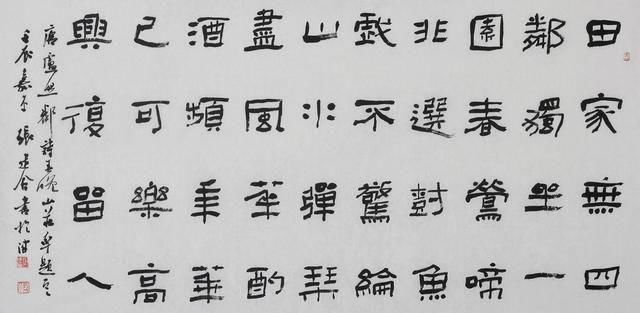 田家無四
鄰獨坐一
園春鶯啼
非選樹魚
戲不驚綸
山水彈琴
盡風花酌
酒頻年華
已可樂高
興復留人
唐盧照鄰詩春晚山莊率題
壬辰嘉平張建會書於津